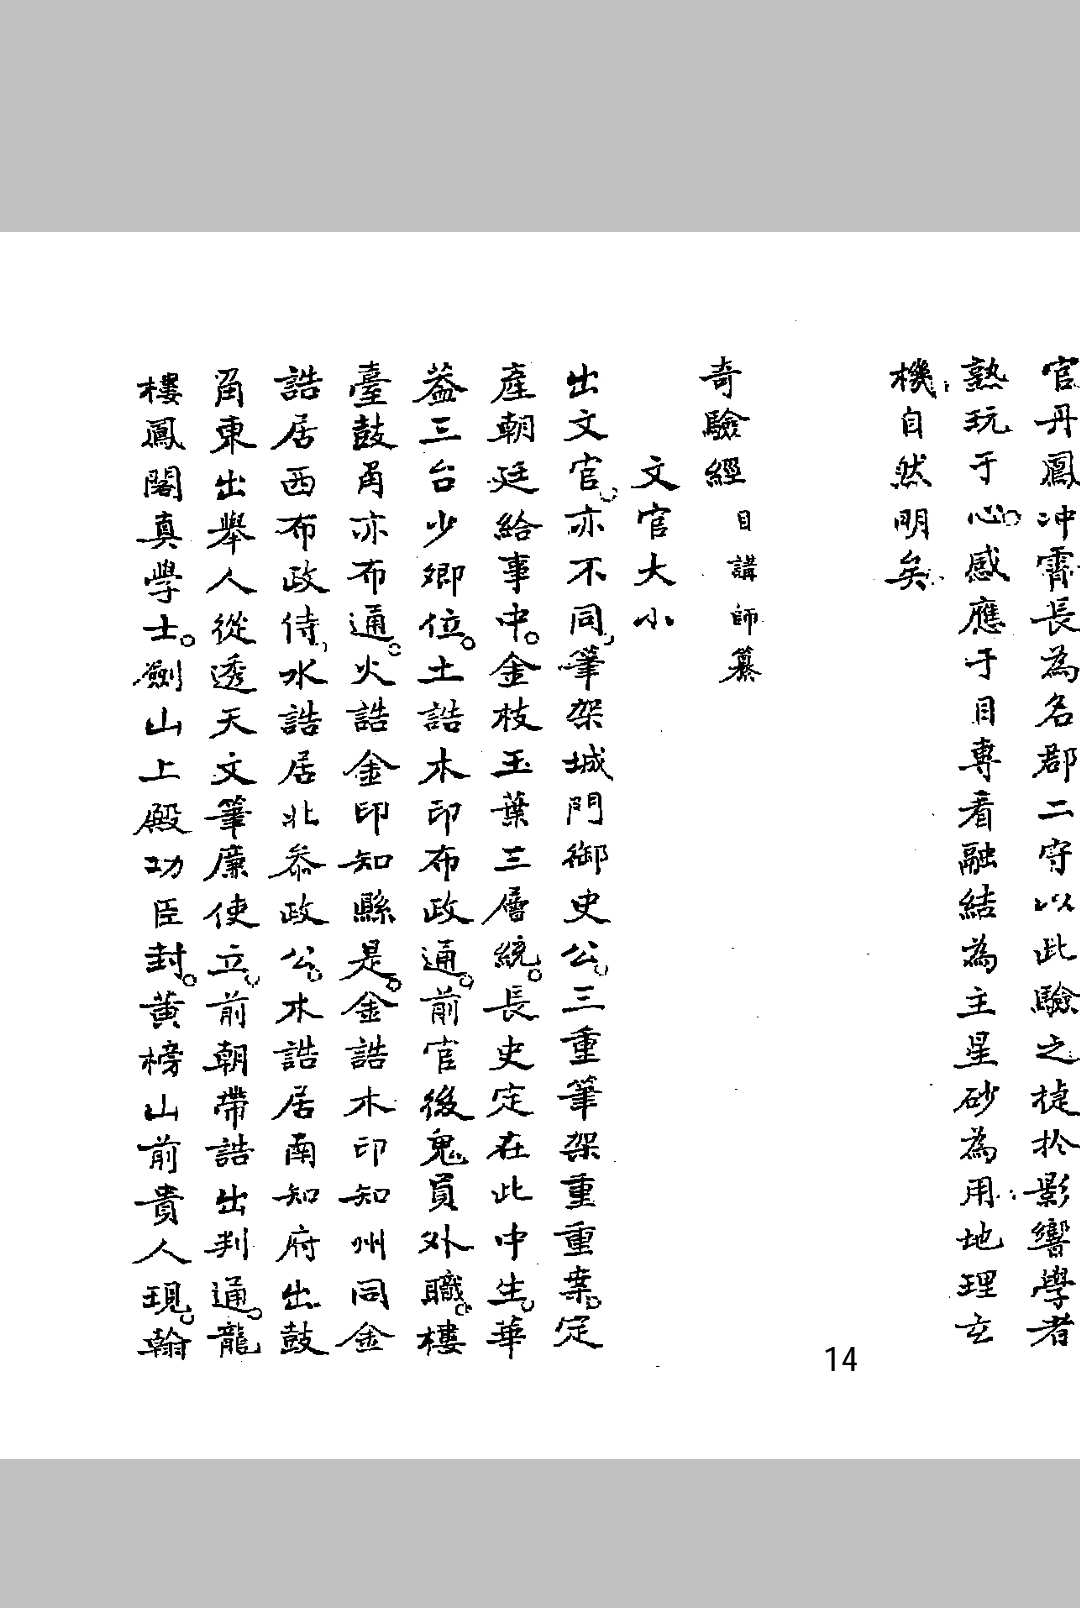 官丹鳳冲霄長為名郡二守以此驗之捷於影響學者
熟玩于心。感應于目專看融結為主星砂為用地理玄
機自然明矣
奇驗經 目講師纂
文官大小
出文官。亦不同。筆架城門御史公。三重筆架重重案。定
產朝廷給事中。金枝玉葉三層統。長史定在此中生。華
蓋三台少卿位。土誥木印布政通。前官後鬼員外職。樓
臺鼓角亦布通。火誥金印知縣是。金誥木印知州同金
誥居西布政侍。水誥居北叅政公。木誥居南知府出鼓
角東出舉人從透天文筆廉使立。前朝帶誥出判通。龍
樓鳳閣真學士。劍山上殿功臣封。黃榜山前貴人現。翰
14